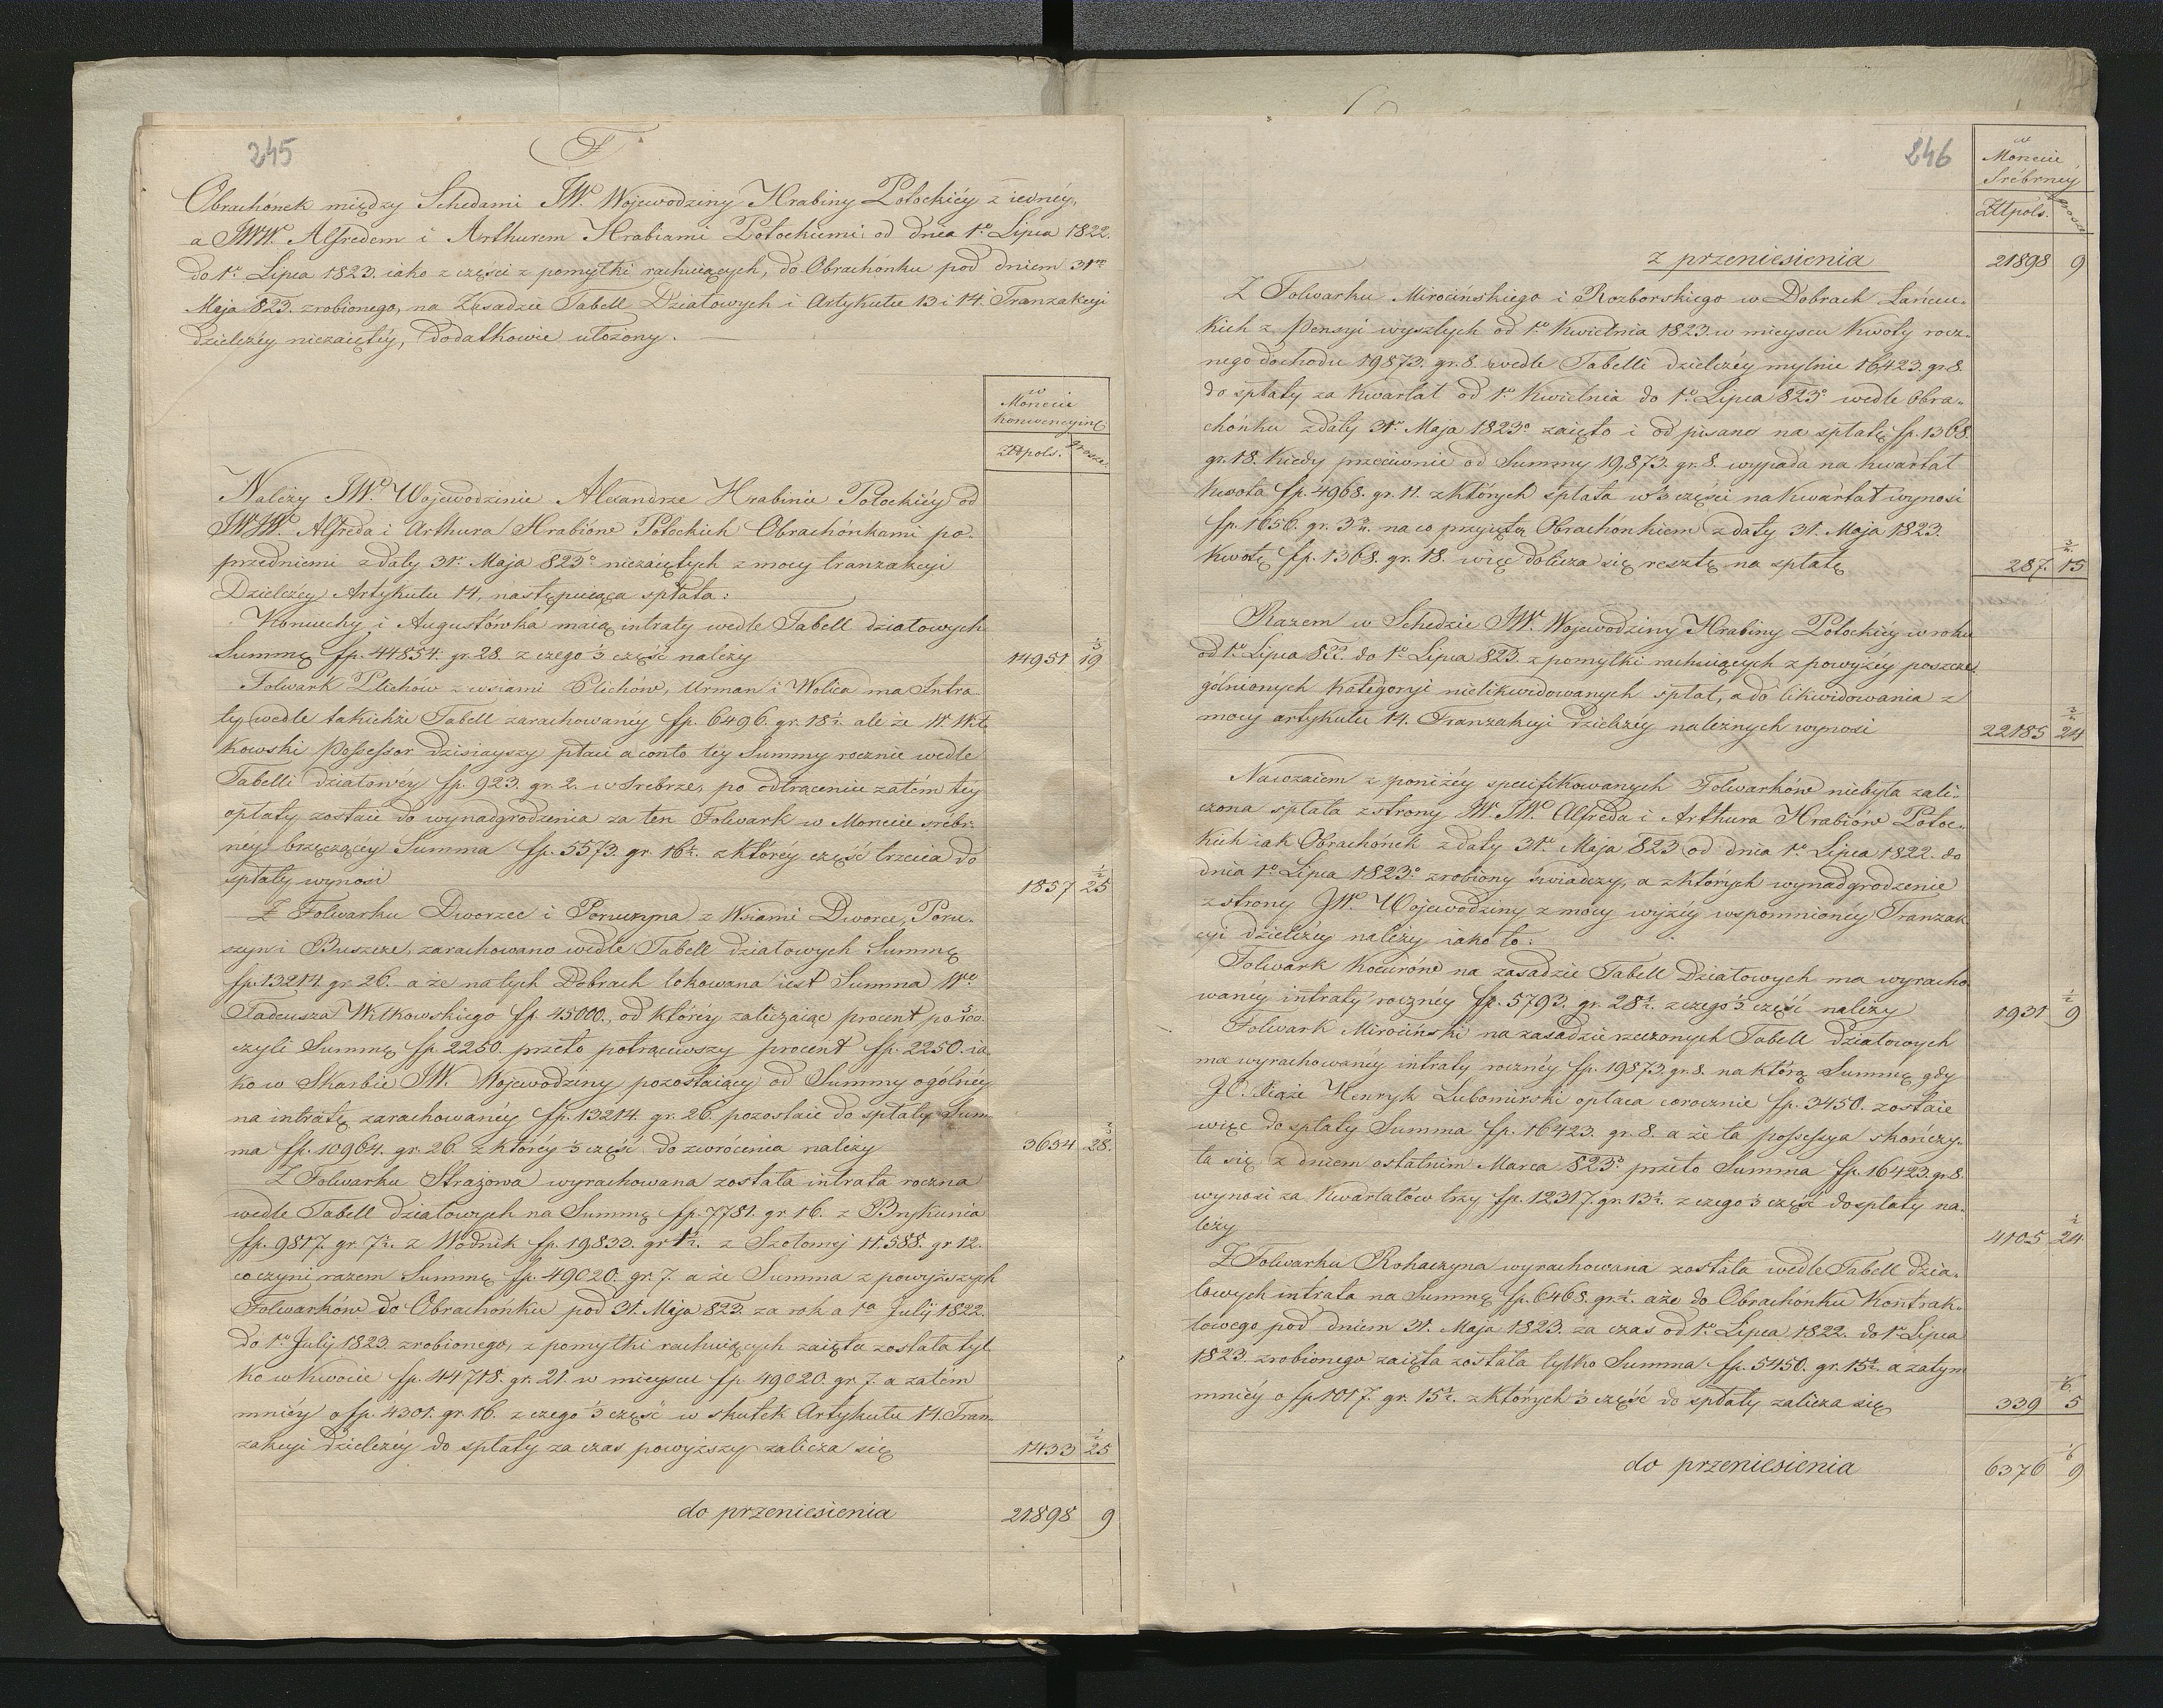 245
F
Obrachónek między Schedami JW. Wojewodziny Hrabiny Potockiéy z iednéy,
a JWW. Alfredem i Arthurem Hrabiami Potockiemi od dnia 1º Lipca 1822.
do 1º Lipca 1823. iako z części z pomyłki rachuiących, do Obrachónku pod dniem 31ᵐ
Maja 823. zrobionego, na Zasadzie Tabell Działowych i Artykułu 13 i 14 Tranzakcyi
Dzielczéy niezaiętéy, Dodatkowie ułożony.
w
Monecie
Konwencyinéy
Złtpols. Grosze.
Należy JW. Wojewodzinie Alexandrze Hrabinie Potockiéy od
JWW. Alfreda i Arthura Hrabiów Potockich Obrachónkami po-
przedniemi z daty 31º Maja 823º niezaiętych z mocy tranzakcyi
Dzielczéy Artykułu 14, następuiąca spłata:
Koniuchy i Augustówka maią intraty wedle Tabell działowych
Summę fp. 44854. gr. 28. z czego ⅓ część należy 14951 19⅓
Folwark Plichów z wsiami Plichów, Urman i Wolica ma Intra-
ty wedle takichże Tabell zarachowanéy fp. 6496. gr. 18½. ale że W. Wit-
kowski Possessor dzisiayszy płaci a conto téy Summy rocznie wedle
Tabelli działowéy fp. 923. gr. 2. w srebrze, po odtrąceniu zatém téy
opłaty zostaie do wynadgrodzenia za ten Folwark w Monecie srébr-
néy brzęczącéy Summa fp. 5573. gr. 16½. z któréy część trzecia do
spłaty wynosi 1857 25½
Z Folwarku Dworzec i Poruczyna z Wsiami Dworce, Poru-
szyn i Buszcze, zarachowano wedle Tabell działowych Summę
fp. 13214. gr. 26. a że na tych Dobrach lokowana iest Summa Wº
Tadeusza Witkowskiego fp. 45000., od któréy zaliczaiąc procent po 5/100.
czyli Summę fp. 2250. przeto potrąciwszy procent fp. 2250. ia-
ko w Skarbie JW. Wojewodziny pozostaiący od Summy ogólnéy
na intratę zarachowanéy fp. 13214. gr. 26. pozostaie do spłaty Sum-
ma fp. 10964. gr. 26. z któréy ⅓ część do zwrócenia należy 3654 28⅔.
Z Folwarku Strażowa wyrachowana została intrata roczna
wedle Tabell działowych na Summę fp. 7781. gr. 16. z Brykunia
fp. 9817. gr. 7½. z Wodnik fp. 19,833. gr. 1½. z Szołomyj 11.588. gr. 12.
co czyni razem Summę fp. 49020. gr. 7. a że Summa z powyższych
Folwarków do Obrachónku pod 31. Maja 823. za rok a 1ª Julij 1822.
do 1º Julij 1823. zrobionego, z pomyłki rachuiących zaięta została tyl-
ko w kwocie fp. 44718. gr. 21. w mieyscu fp. 49020. gr. 7. a zatém
mniéy o fp. 4301. gr. 16. z czego ⅓ część w skutek Artykułu 14. Tran-
zakcyi dzielczéy do spłaty za czas powyższy zalicza się 1433 25½
do przeniesienia 21898 9
246
w
Monecie
Srébrnéy
Złtpols. Grosze
z przeniesienia 21898 9
Z Folwarku Mirocińskiego i Rozborskiego w Dobrach Łańcuc-
kich z Pensyi wyszłych od 1º Kwietnia 1823. w mieyscu Kwoty rocz-
nego dochodu 19873. gr. 8. wedle Tabelli dzielczéy mylnie 16,423. gr. 8.
do spłaty za kwartał od 1º Kwietnia do 1º Lipca 823º wedle Obra-
chónku z daty 31º Maja 1823º zaięto i odpisano na spłatę fp. 1368.
gr. 18. kiedy przeciwnie od Summy 19,873. gr. 8. wypada na kwartał
kwota fp. 4968. gr. 11. z których spłata w ⅓ części na kwartał wynosi
fp. 1656. gr. 3⅔. na co przyjętą Obrachónkiem z daty 31. Maja 1823.
kwotę fp. 1368. gr. 18. więc dolicza się resztę na spłatę 287. 15⅔
Razem w Schedzie JW. Wojewodziny Hrabiny Potockiéy w roku
od 1º Lipca 822. do 1º Lipca 823. z pomyłki rachuiących z powyżéy poszcze-
gólnionych kategoryi nielikwidowanych spłat, a do likwidowania z
mocy artykułu 14. Tranzakcyi dzielczéy należnych wynosi 22185 24⅔
Nawzaiem z poniżéy specifikowanych Folwarków niebyła zali-
czona spłata z strony JW. JW. Alfreda i Arthura Hrabiów Potoc-
kich iak Obrachónek z daty 31º Maja 823 od dnia 1º Lipca 1822. do
dnia 1º Lipca 1823º zrobiony świadczy, a z których wynadgrodzenie
z strony JW. Wojewodziny z mocy wyżéy wspomnionéy Tranzak-
cyi dzielczéy należy iako to:
Folwark Kociurów na zasadzie Tabell Działowych ma wyracho-
wanéy intraty rocznéy fp. 5793. gr. 28½. z czego ⅓ część należy 1931 9½
Folwark Mirociński na zasadzie rzeczonych Tabell działowych
ma wyrachowanéy intraty rocznéy fp. 19873. gr. 8. na którą Summę gdy
JO. Xiąże Henryk Lubomirski opłaca corocznie fp. 3450. zostaie
więc do spłaty Summa fp. 16423. gr. 8. a że ta possessya skończy-
ła się z dniem ostatnim Marca 823º przeto Summa fp. 16423. gr. 8.
wynosi za kwartałów trzy fp. 12317. gr. 13½. z czego ⅓ część do spłaty na-
leży 4105 24½
Z Folwarku Rohaczyna wyrachowana została wedle Tabell dzia-
łowych intrata na Summę fp. 6468. gr. ½. a że do Obrachónku Kontrak-
towego pod dniem 31. Maja 1823. za czas od 1º Lipca 1822. do 1º Lipca
1823. zrobionego zaięta została tylko Summa fp. 5450. gr. 15½. a zatym
mniéy o fp. 1017. gr. 15½. z których ⅓ część do spłaty zalicza się 339 5⅙
do przeniesienia 6376 9⅙